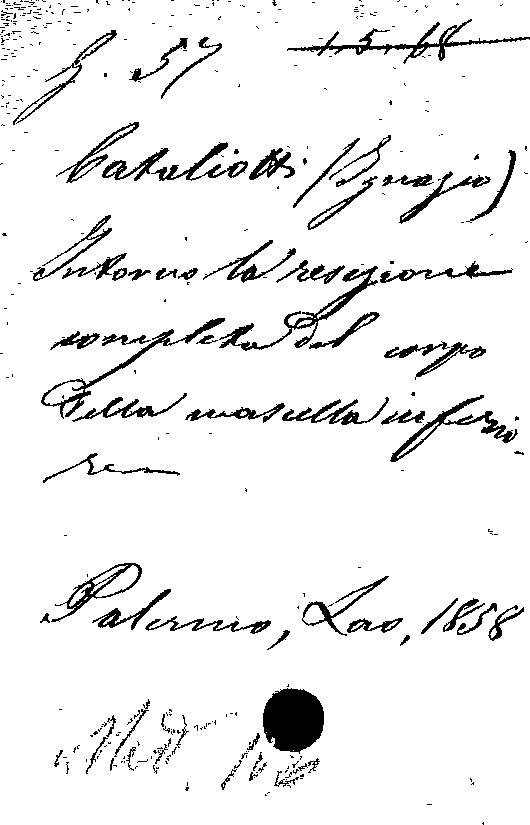 G. 57 1. 5. 68
Cataliotti (Ignazio)
Intorno la resezione
completa del corpo
della mascella inferio-
re
Palermo, Lao, 1858
Med.